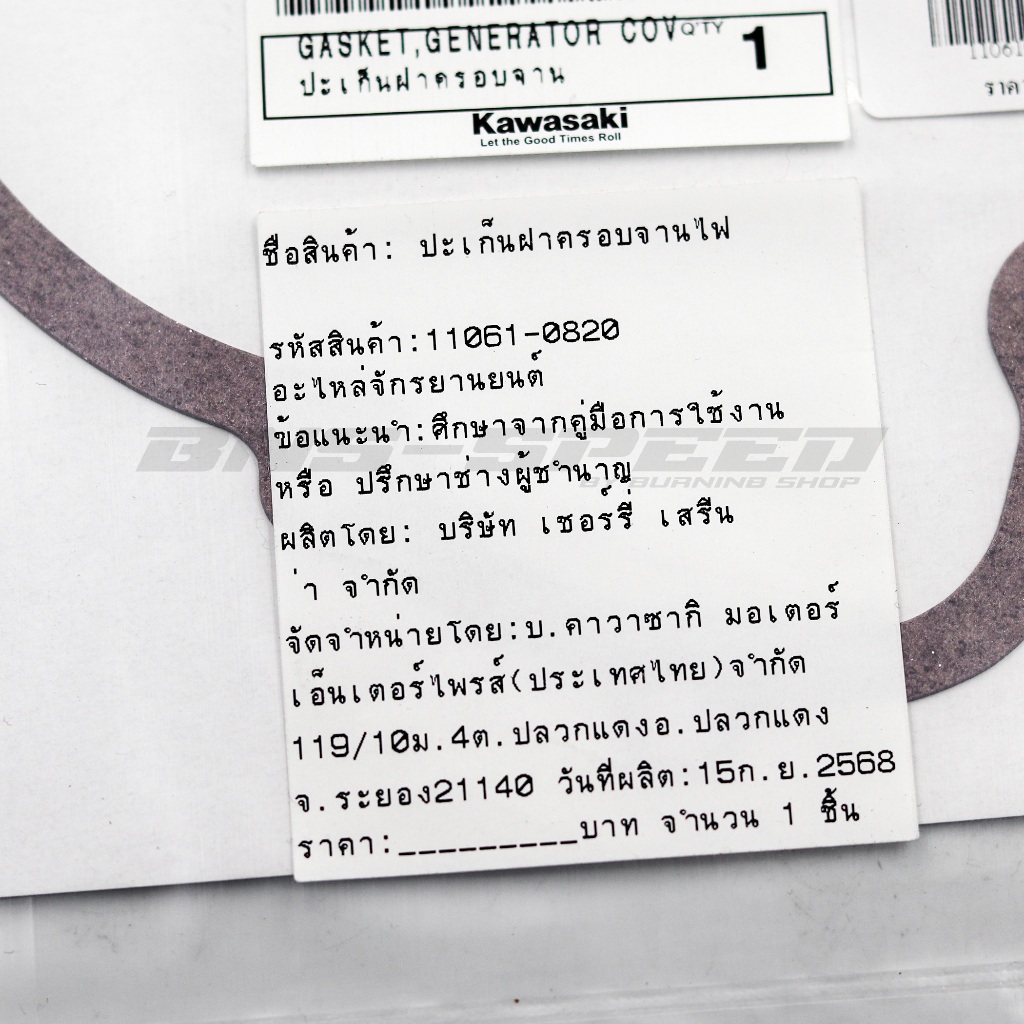 GASKET,GENERATOR COV Q'TY 1
ปะเก็นฝาครอบจาน
Kawasaki
Let the Good Times Roll
11061
ราคา
ชื่อสินค้า: ปะเก็นฝาครอบจานไฟ
รหัสสินค้า:11061-0820
อะไหล่จักรยานยนต์
ข้อแนะนำ:ศึกษาจากคู่มือการใช้งาน
หรือ ปรึกษาช่างผู้ชำนาญ
BNS-SPEED
BY BURNIN8 SHOP
ผลิตโดย: บริษัท เชอร์รี่ เสรีน
่า จำกัด
จัดจำหน่ายโดย:บ.คาวาซากิ มอเตอร์
เอ็นเตอร์ไพรส์(ประเทศไทย)จำกัด
119/10ม.4ต.ปลวกแดงอ.ปลวกแดง
จ.ระยอง21140 วันที่ผลิต:15ก.ย.2568
ราคา:_________บาท จำนวน 1 ชิ้น